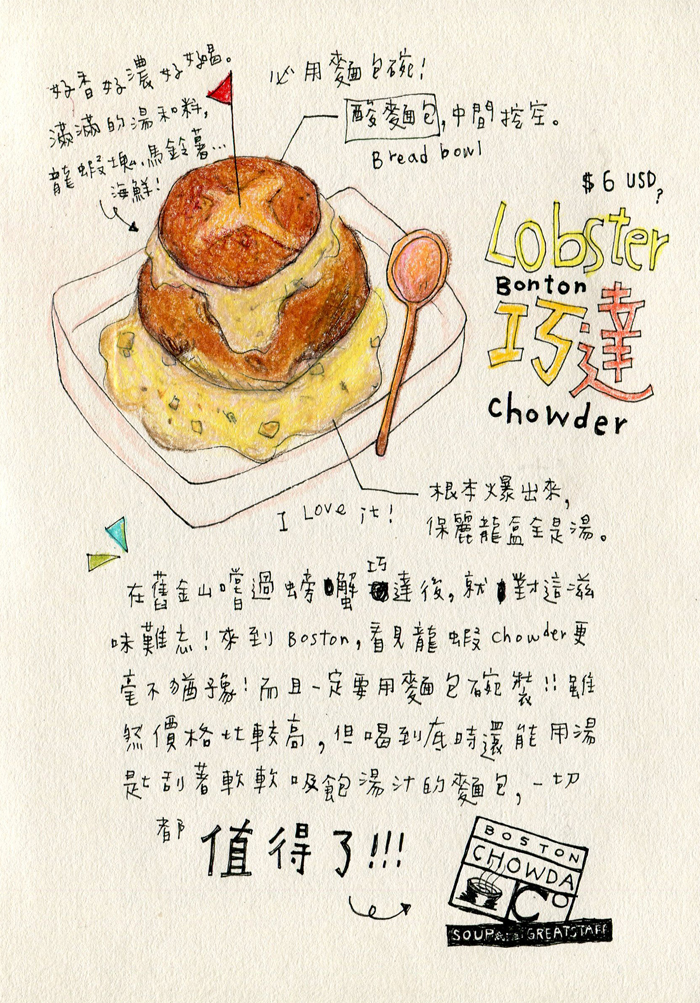 好香好濃好好喝。
滿滿的湯和料,
龍蝦塊、馬鈴薯...
海鮮!
必用麵包碗!
酸麵包,中間挖空。
Bread bowl
$6 USD?
Lobster
Bonton
巧達
chowder
I Love it!
根本爆出來,
保麗龍盒全是湯。
在舊金山嚐過螃蟹巧達後,就對這滋
味難忘!來到Boston,看見龍蝦chowder更
毫不猶豫!而且一定要用麵包碗裝!!雖
然價格比較高,但喝到底時還能用湯
匙刮著軟軟吸飽湯汁的麵包,一切
都值得了!!!
BOSTON
CHOWDA
Co
SOUP GREAT STAFF